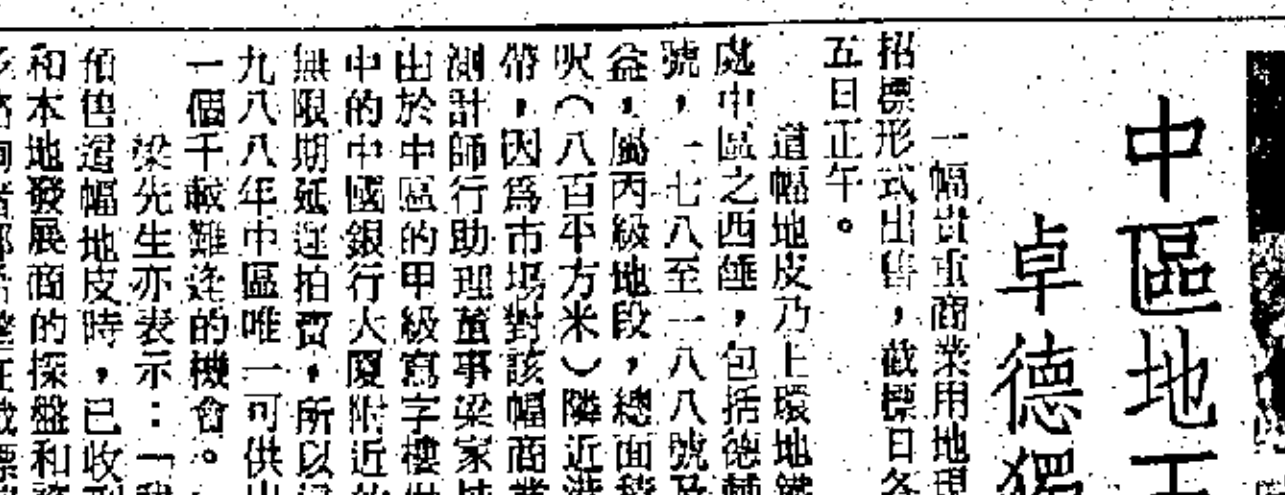 中區地
卓德獨
一幅貴重商業用地現
招標形式出售，截標日
五日正午。
這幅地皮乃上環地鐵
處中區之西陲，包括德輔
號，一七八至一八八號及
益，屬丙級地段，總面積
呎（八百平方米）隣近港
帶，因爲市場對該幅商業
測計師行助理董事梁家
由於中區的甲級寫字樓供
中的中國銀行大廈附近的
無限期延遲拍賣，所以
九八八年中區唯一可供出
一個千載難逢的機會。
梁先生亦表示：「我
預售這幅地皮時，已收到
和本地發展商的探盤和